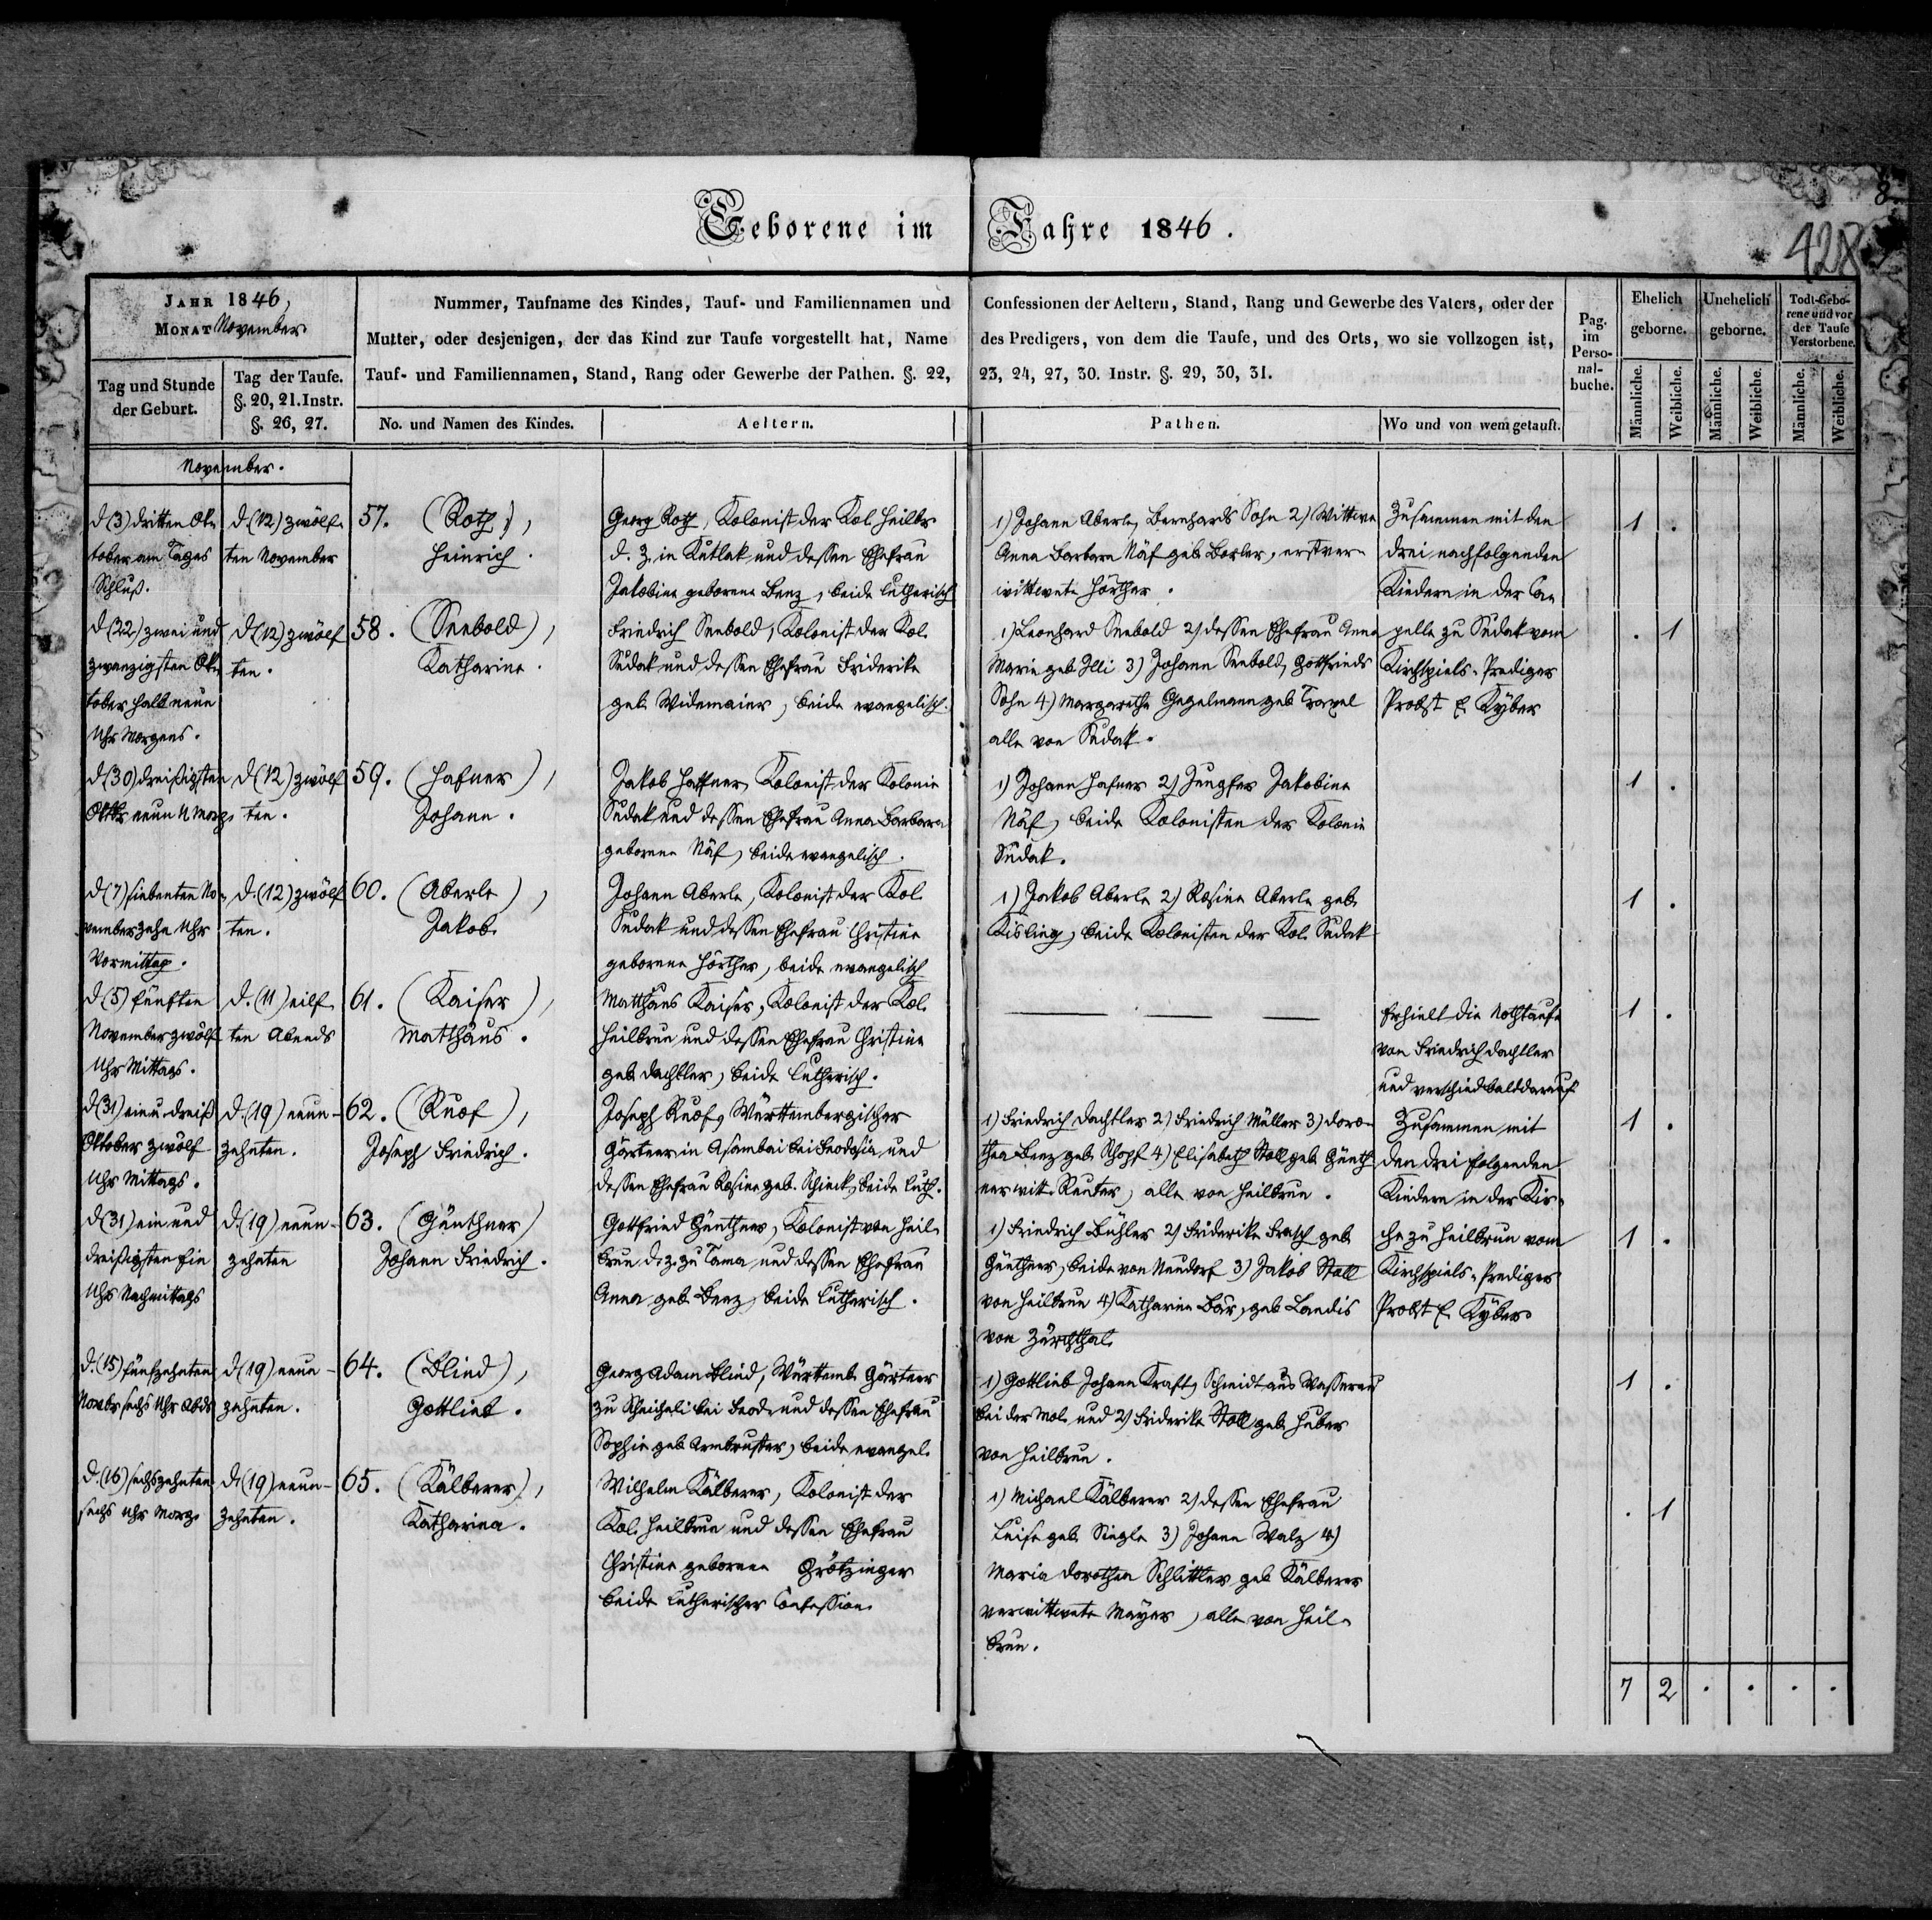 Geborene im Jahre 1846.
8.
428
JAHR 1846,
MONAT November
Tag und Stunde der Geburt.
Tag der Taufe. §. 20, 21. Instr. §. 26, 27.
Nummer, Taufname des Kindes, Tauf- und Familiennamen und
Mutter, oder desjenigen, der das Kind zur Taufe vorgestellt hat, Name
Tauf- und Familiennamen, Stand, Rang oder Gewerbe der Pathen. §. 22,
No. und Namen des Kindes.
Aeltern.
Confessionen der Aeltern, Stand, Rang und Gewerbe des Vaters, oder der
des Predigers, von dem die Taufe, und des Orts, wo sie vollzogen ist,
23, 24, 27, 30. Instr. §. 29, 30, 31.
Pathen.
Wo und von wem getauft.
Pag. im Perso-nal-buche.
Ehelich geborne.
Unehelich geborne.
Todt-Gebo-rene und vor der Taufe Verstorbene.
Männliche. Weibliche. Männliche. Weibliche. Männliche. Weibliche.
November.
d (3) dritten Ok-
tober am Tages
Schluß.
d (12) zwölf-
ten November
57. (Roth),
Heinrich.
Georg Roth, Kolonist der Kol. Heilbr.
d. Z. in Kutlak und dessen Ehefrau
Jakobine geborene Benz, beide lutherisch
1) Johann Aberle, Bernhards Sohn 2) Wittwe
Anna Barbara Näf geb. Bosler, erstver-
wittwete Hörther.
Zusammen mit den
drei nachfolgenden
Kindern in der Ca-
1 .
d (22) zwei und
zwanzigsten Ok-
tober halb neun
Uhr Morgens.
d (12) zwölf
ten.
58. (Seebold),
Katharine.
Friedrich Seebold, Kolonist der Kol.
Sudak und dessen Ehefrau Friderike
geb. Widemaier, beide evangelisch.
1) Leonhard Seebold 2) dessen Ehefrau Anna
Marie geb. Illi 3) Johann Seebold, Gottfrieds
Sohn 4) Margarethe Gegelmann geb. Troxel
alle von Sudak.
pelle zu Sudak vom
Kirchspiels-Prediger
Probst E. Kyber
. 1
d (30) dreißigsten
Oktbr neun U Morg.
d (12) zwölf
ten.
59. (Hafner),
Johann.
Jakob Haffner, Kolonist der Kolonie
Sudak und dessen Ehefrau Anna Barbara
geborene Näf, beide evangelisch.
1) Johann Hafner 2) Jungfer Jakobine
Näf, beide Kolonisten der Kolonie
Sudak.
1 .
d (7) siebenten No-
vember zehn Uhr
Vormittag.
d. (12) zwölf
ten.
60. (Aberle),
Jakob.
Johann Aberle, Kolonist der Kol.
Sudak und dessen Ehefrau Christine
geborene Hörther, beide evangelisch
1) Jakob Aberle 2) Rosine Aberle geb.
Kisling, beide Kolonisten der Kol. Sudak
1 .
d (5) fünften
November zwölf
Uhr Mittags.
d. (11) eilf
ten Abends
61. (Kaiser),
Matthäus.
Matthäus Kaiser, Kolonist der Kol.
Heilbrun und dessen Ehefrau Christine
geb. Dachtler, beide lutherisch.
Erhielt die Nothtaufe
von Friedrich Dachtler
und verschied bald darauf
1 .
d (31) ein u. dreiß
Oktober zwölf
Uhr Mittags.
d. (19) neun-
zehnten.
62. (Ruof),
Joseph Friedrich.
Joseph Ruof, Württembergischer
Gärtner in Asambai bei Feodosia, und
dessen Ehefrau Rosine geb. Schieck, beide luth.
1) Friedrich Dachtler 2) Friedrich Müller 3) Doro-
thea Benz geb. Schopf 4) Elisabeth Stoll geb. Günth
ner witt. Reuter, alle von Heilbrun.
Zusammen mit
den drei folgenden
Kindern in der Kir-
1 .
d (31) ein und
dreißigsten Ein
Uhr Nachmittags
d. (19) neun-
zehnten
63. (Günthner)
Johann Friedrich.
Gottfried Günthner, Kolonist von Heil-
brun d. z. zu Tama und dessen Ehefrau
Anna geb. Benz, beide lutherisch.
1) Friedrich Bühler 2) Friderike Frasch geb.
Günthner, beide von Neudorf 3) Jakob Stoll
von Heilbrun 4) Katharine Bär, geb. Landis
von Zürchthal.
che zu Heilbrun vom
Kirchspiels-Prediger
Probst E. Kyber.
1 .
d. (15) fünfzehnten
Novbr sechs Uhr Abds
d (19) neun-
zehnten.
64. (Blind),
Gottlieb.
Georg Adam Blind, Württemb. Gärtner
zu Scheicheli bei Feod. und dessen Ehefrau
Sophie geb. Armbruster, beide evangel.
1) Gottlieb Johann Kraft, Schmidt aus Wasserau
bei der Mol. und 2) Friderike Stoll geb. Huber
von Heilbrun.
1 .
d. (16) sechszehnten
sechs Uhr Morg.
d. (19) neun-
zehnten.
65. (Kälberer),
Katharina.
Wilhelm Kälberer, Kolonist der
Kol. Heilbrun und dessen Ehefrau
Christine geborene Grötzinger
beide lutherischer Confession.
1) Michael Kälberer 2) dessen Ehefrau
Luise geb. Siegle 3) Johann Walz 4)
Maria Dorothea Schlittler geb. Kälberer
verwittwete Mayer, alle von Heil-
brun.
. 1
7 2 . . . .